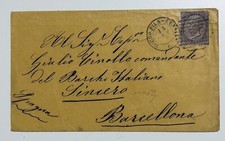 Al Sigr Capn
Giulio Tinollo comandante
del Barcho Italiano
Sincero
Spagna
Barcellona